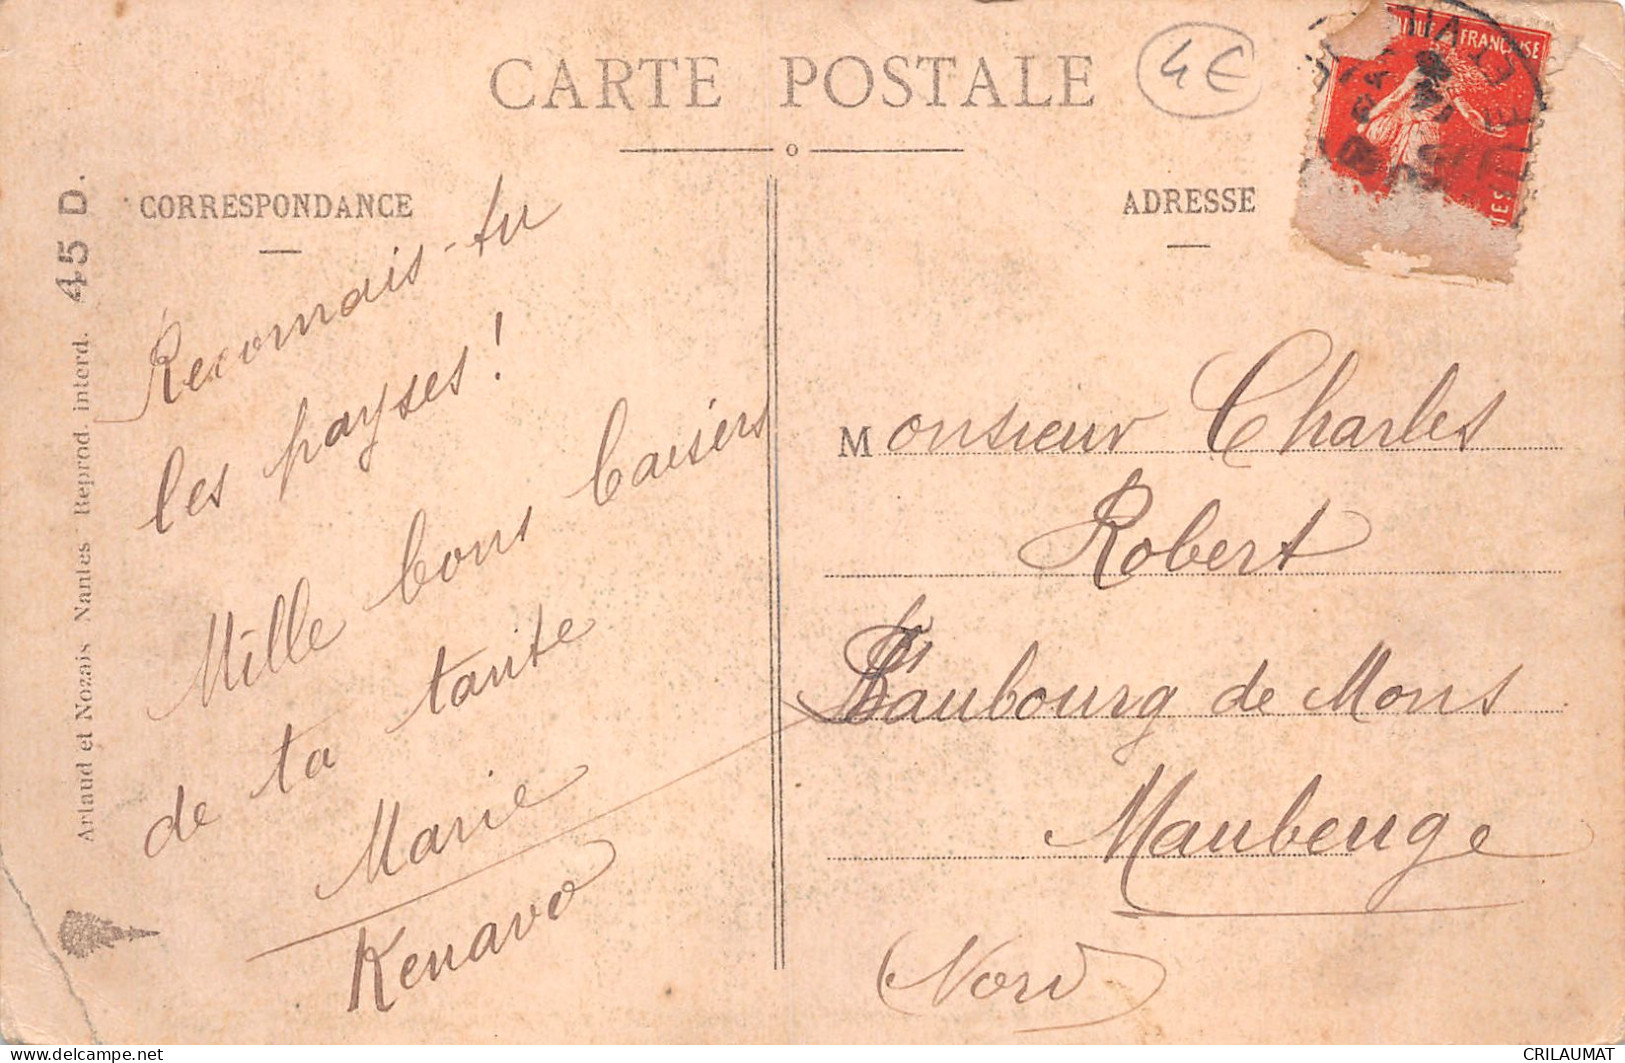 CARTE POSTALE
4€
RÉPUBLIQUE FRANÇAISE
CORRESPONDANCE
ADRESSE
Artaud et Nozais Nantes Reprod. interd. 45 D.
Reconnais-tu
les payses !
Mille bons baisers
de ta tante
Marie
Kenavo
Monsieur Charles
Robert
Faubourg de Mons
Maubeuge
(Nord)
CRILAUMAT